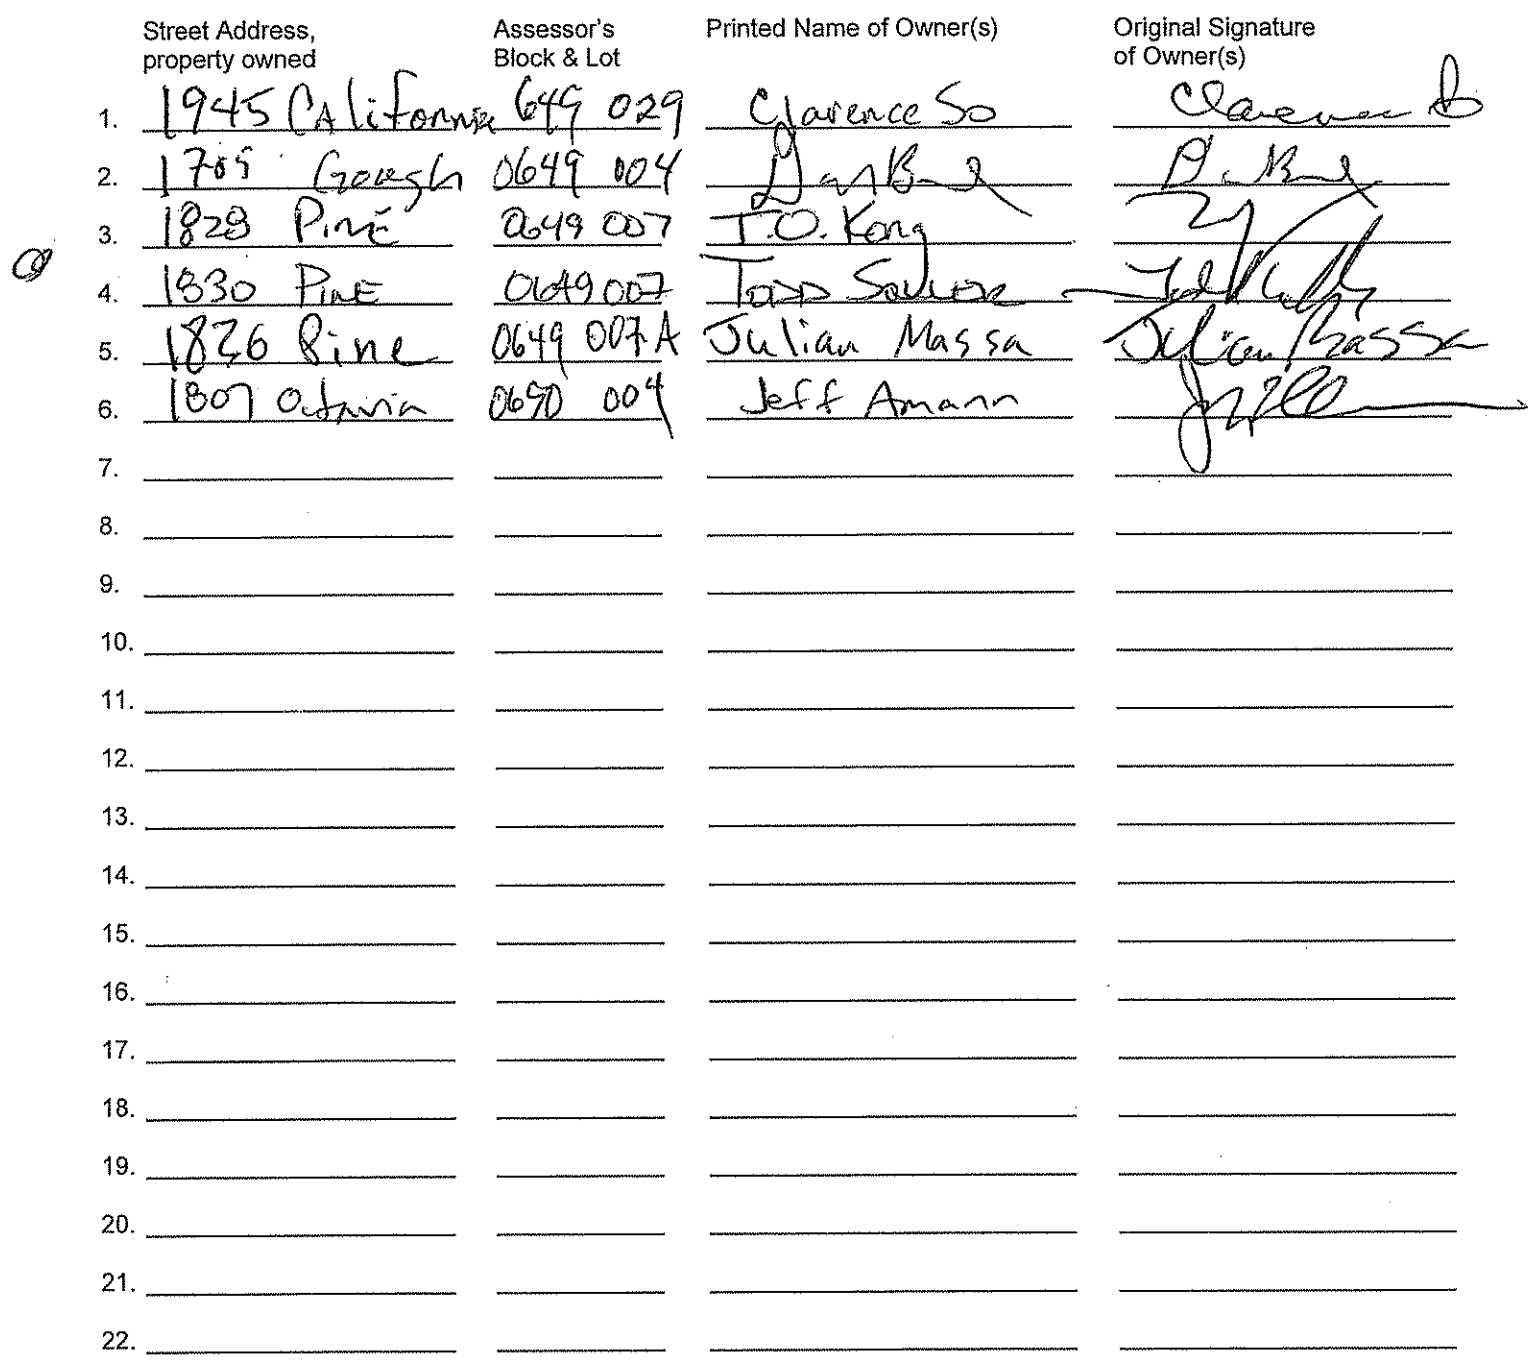 Street Address, Assessor's Printed Name of Owner(s) Original Signature
property owned Block & Lot of Owner(s)
1. 1945 CAlifornia 649 029 Clarence So Clarence So
2. 1705 Gough 0649 004
3. 1828 PINE 0649 007 T.O. Kong
4. 1830 PINE 0649 007 TODD
5. 1826 Pine 0649 007A Julian Massa Julian Massa
6. 1807 Octavia 0650 004 Jeff Amann
7.
8.
9.
10.
11.
12.
13.
14.
15.
16.
17.
18.
19.
20.
21.
22.